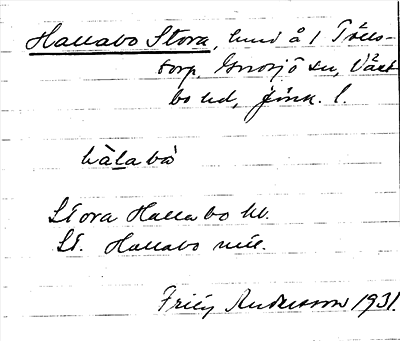 Hallabo Stora, hmd å 1 Träls-
torp, Gnosjö sn, Väst
bo hd, Jönk. l.
hàlabò
Stora Hallabo hl.
St. Hallabo mil.
Andersson 1931.